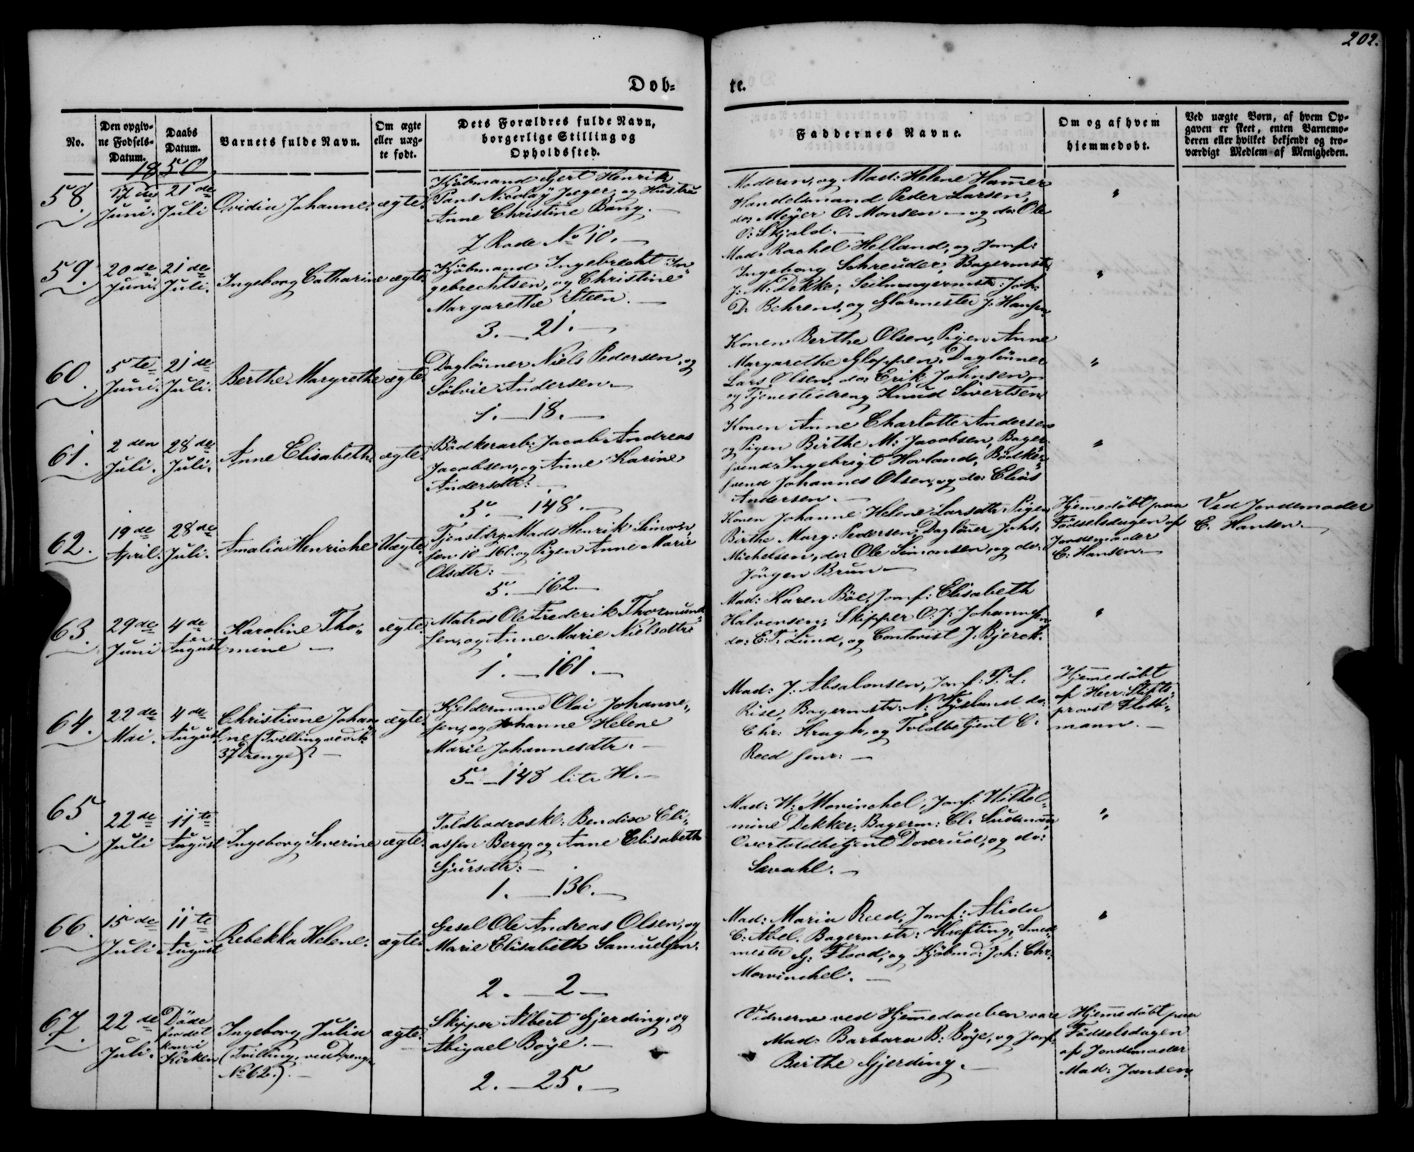 202.
Døbte.
No.
Den opgivne Fødsels-Datum.
Daabs Datum.
Barnets fulde Navn.
Om ægte eller uægte født.
Dets Forældres fulde Navn, borgerlige Stilling og Opholdssted.
Faddernes Navne.
Om og af hvem hjemmedøbt.
Ved uægte Børn, af hvem Opgaven er skeet, enten Barnemoderen eller hvilket bekjendt og troværdigt Medlem af Menigheden.
1850.
58.
Juni.
21de
Juli
Ovidia Johanne.
ægte.
Kjøbmand Gert Henrik
Pans Nicolay Jeger, og Hustru
Anne Christine Bang.
7 Rode No 10.
Moderen, og Mad: Helene Hammer
Handelsmand Peder Larsen,
do: Meyer O. Monsen og do: Ole
O. Skjold.
"
59.
20de
Juni.
21de
Juli.
Ingeborg Catharine
ægte.
Kjøbmand Ingebrecht In-
gebrechtsen, og Christine
Margarethe Steen.
3. 21.
Mad: Rachel Helland, og Jomf:
Ingeborg Schreuder, Bagermstr
J. M. Dekke, Seilmagermstr: Joh:
D. Behrens, og Glarmester J. Hansen
"
60.
5te
Juni.
21de
Juli.
Berthe Margrethe
ægte
Daglönner Niels Pedersen, og
Sölvie Andersen.
1. 18.
Konen Berthe Olsen, Pigen Anne
Margarethe Gloppen, Daglönner
Lars Olsen, do: Erik Johnsen,
og Tjenestedreng Knud Sivertsen
"
61.
2den
Juli.
28de
Juli.
Anne Elisabeth.
ægte.
Bödkerarb: Jacob Andreas
Jacobsen, og Anne Karine
Andersdtr:
5. 148.
Konen Anne Charlotte Andersen
og Pigen Birthe M: Jacobsen, Bager-
svend Ingebrigt Hovland, Bödker-
svend Johannes Olsen, og do: Elias
Andersen.
"
62.
19de
April.
28de
Juli.
Amalia Henriche
Uægte.
Mads Henrik Simon-
sen 10. 160. og Pigen Anne Marie
Olsdtr:
5. 162.
Konen Johanne Helene Larsdtr Pigen
Birthe Marg: Pedersen, Daglöner Johs.
Michelsen, do: Ole Simonsen, og do:
Jörgen Brun
Hjemedöbt paa
Födselsdagen af
Jordemoder
C. Hansen.
Ved Jordemoder
C. Hansen.
63.
29de
Juni
4de
August
Karoline Tho-
mine
ægte.
Matros Ole Frederik Thormund-
sen, og Anne Marie Nielsdtr
1. 161.
Mad: Karen Böe, Jomf: Elisabeth
Halvorsen, Skipper O. J. Johannesen
do: E. T. Lund, og Contorist J. Bjerck.
"
64.
22de
Mai.
4de
August
Christiane Johan-
ne (Tvilling ved No
37 Drenge).
ægte.
Kjeldermand Olai Johanne-
sen, og Johanne Helene
Marie Johannesdtr.
5. 148 litr H.
Mad: J. Absalonsen, Jomf: P. L.
Rise, Bagermstr: N: Fysland do:
Chr: Kragh, og Toldbetjent C.
Reed Senr:
Hjemedöbt
af Herr Stifts-
provst Flott-
mann.
65.
22de
Juli
11te
August
Ingeborg Severine
ægte.
Toldbadroskl: Bendix Eli-
assen Berg, og Anne Elisabeth
Sjursdtr:
1. 136.
Mad: W: Mowinchel, Jomf: Wilhel-
mine Dekker, Bagerm: Cl: Sudmann
Overtoldbetjent Doxrud, og do:
Sævahl.
"
66.
15de
Juli.
11te
August
Rebekka Helene.
ægte.
Gesel Ole Andreas Olsen, og
Marie Elisabeth Samuelsen.
2. 2
Mad: Maria Reed, Jomf: Alida
C. Abel, Bagermstr: Kufting, Smed-
mester G. Flood, og Kjöbmd: Joh: Chr:
Mowinchel.
"
67.
22de
Juli.
Döde
forend
kom i
Kirken
Ingeborg Julia
(Tvilling ved Drenge
No 62.)
ægte.
Skipper Albert Gjerding, og
Abigael Böye.
2. 25.
Vidnerne ved Hjemedaaben vare
Mad: Barbara B. Böje, og Jomf.
Berthe Gjerding.
Hjemedöbt paa
Födselsdagen
af Jordemoder
Mad: Jansen.